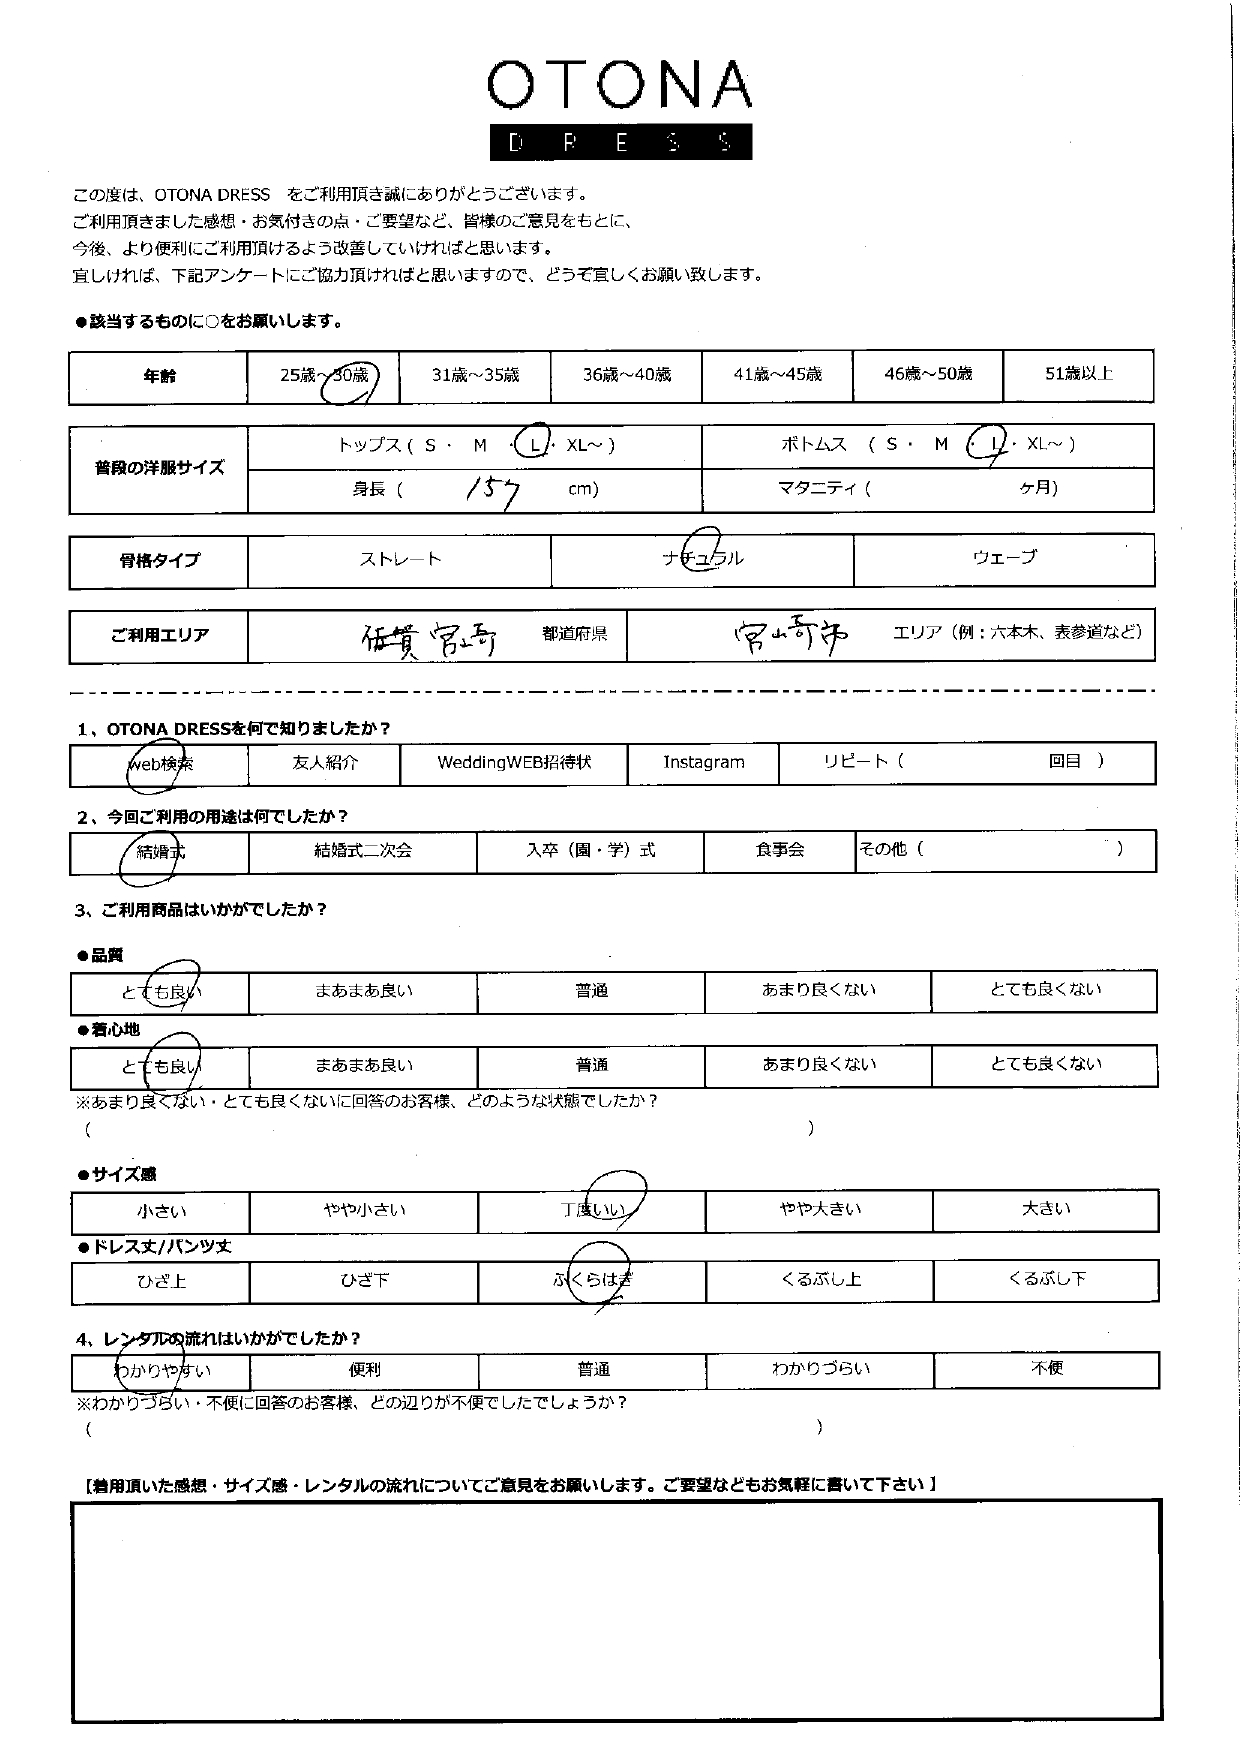 OTONA
DRESS
この度は、OTONA DRESS をご利用頂き誠にありがとうございます。
ご利用頂きました感想・お気付きの点・ご要望など、皆様のご意見をもとに、
今後、より便利にご利用頂けるよう改善していければと思います。
宜しければ、下記アンケートにご協力頂ければと思いますので、どうぞ宜しくお願い致します。
●該当するものに○をお願いします。
年齢 25歳～30歳 31歳～35歳 36歳～40歳 41歳～45歳 46歳～50歳 51歳以上
普段の洋服サイズ トップス ( S ・ M ・ L ・ XL～ ) ボトムス ( S ・ M ・ L ・ XL～ )
身長 ( 157 cm) マタニティ ( ケ月)
骨格タイプ ストレート ナチュラル ウェーブ
ご利用エリア 佐賀 宮崎 都道府県 宮崎市 エリア（例：六本木、表参道など）
1、OTONA DRESSを何で知りましたか？
web検索 友人紹介 WeddingWEB招待状 Instagram リピート ( 回目 )
2、今回ご利用の用途は何でしたか？
結婚式 結婚式二次会 入卒（園・学）式 食事会 その他 ( )
3、ご利用商品はいかがでしたか？
●品質
とても良い まあまあ良い 普通 あまり良くない とても良くない
●着心地
とても良い まあまあ良い 普通 あまり良くない とても良くない
※あまり良くない・とても良くないに回答のお客様、どのような状態でしたか？
( )
●サイズ感
小さい やや小さい 丁度いい やや大きい 大きい
●ドレス丈/パンツ丈
ひざ上 ひざ下 ふくらはぎ くるぶし上 くるぶし下
4、レンタルの流れはいかがでしたか？
わかりやすい 便利 普通 わかりづらい 不便
※わかりづらい・不便に回答のお客様、どの辺りが不便でしたでしょうか？
( )
【着用頂いた感想・サイズ感・レンタルの流れについてご意見をお願いします。ご要望などもお気軽に書いて下さい 】